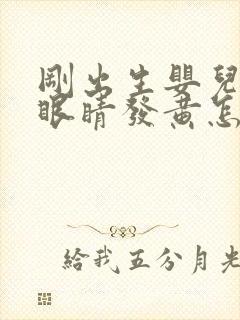 剛出生嬰兒
眼睛發黃怎
給我五分月光